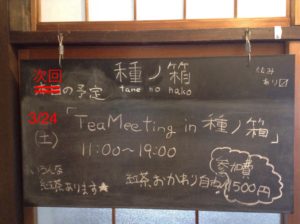 種ノ箱
tane no hako
次回
本日の予定
3/24
(土)
「TeaMeeting in 種ノ箱」
11:00~19:00
いろんな
紅茶あります★
紅茶おかわり自由
参加費
1500円